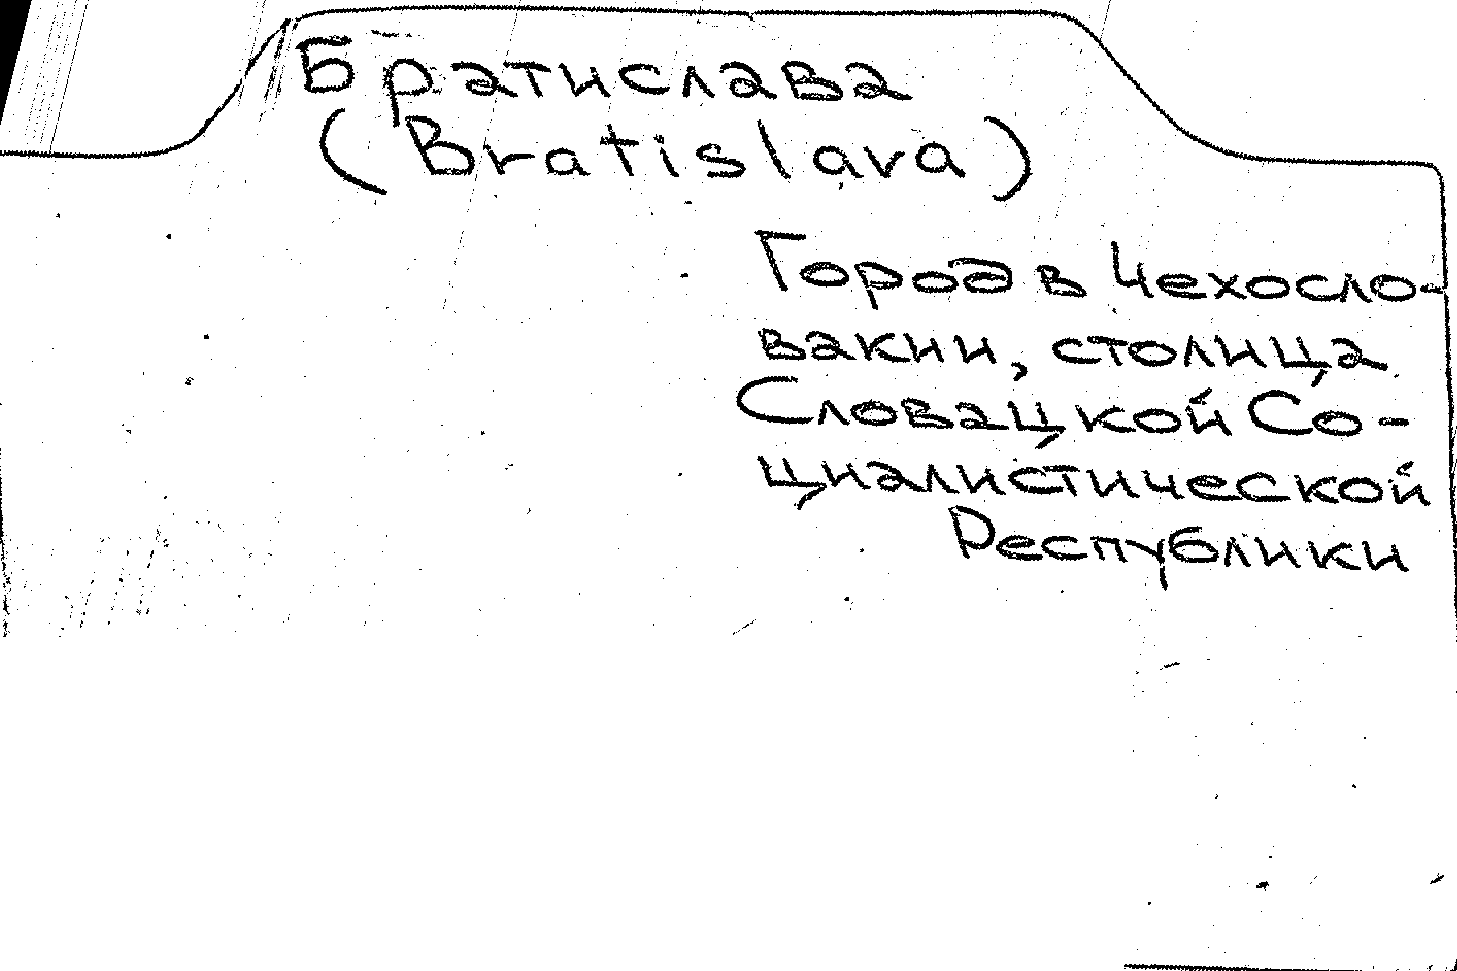 Братислава
(Bratislava)
Город в Чехосло-
вакии, столица
Словацкой Со-
циалистической
Республики